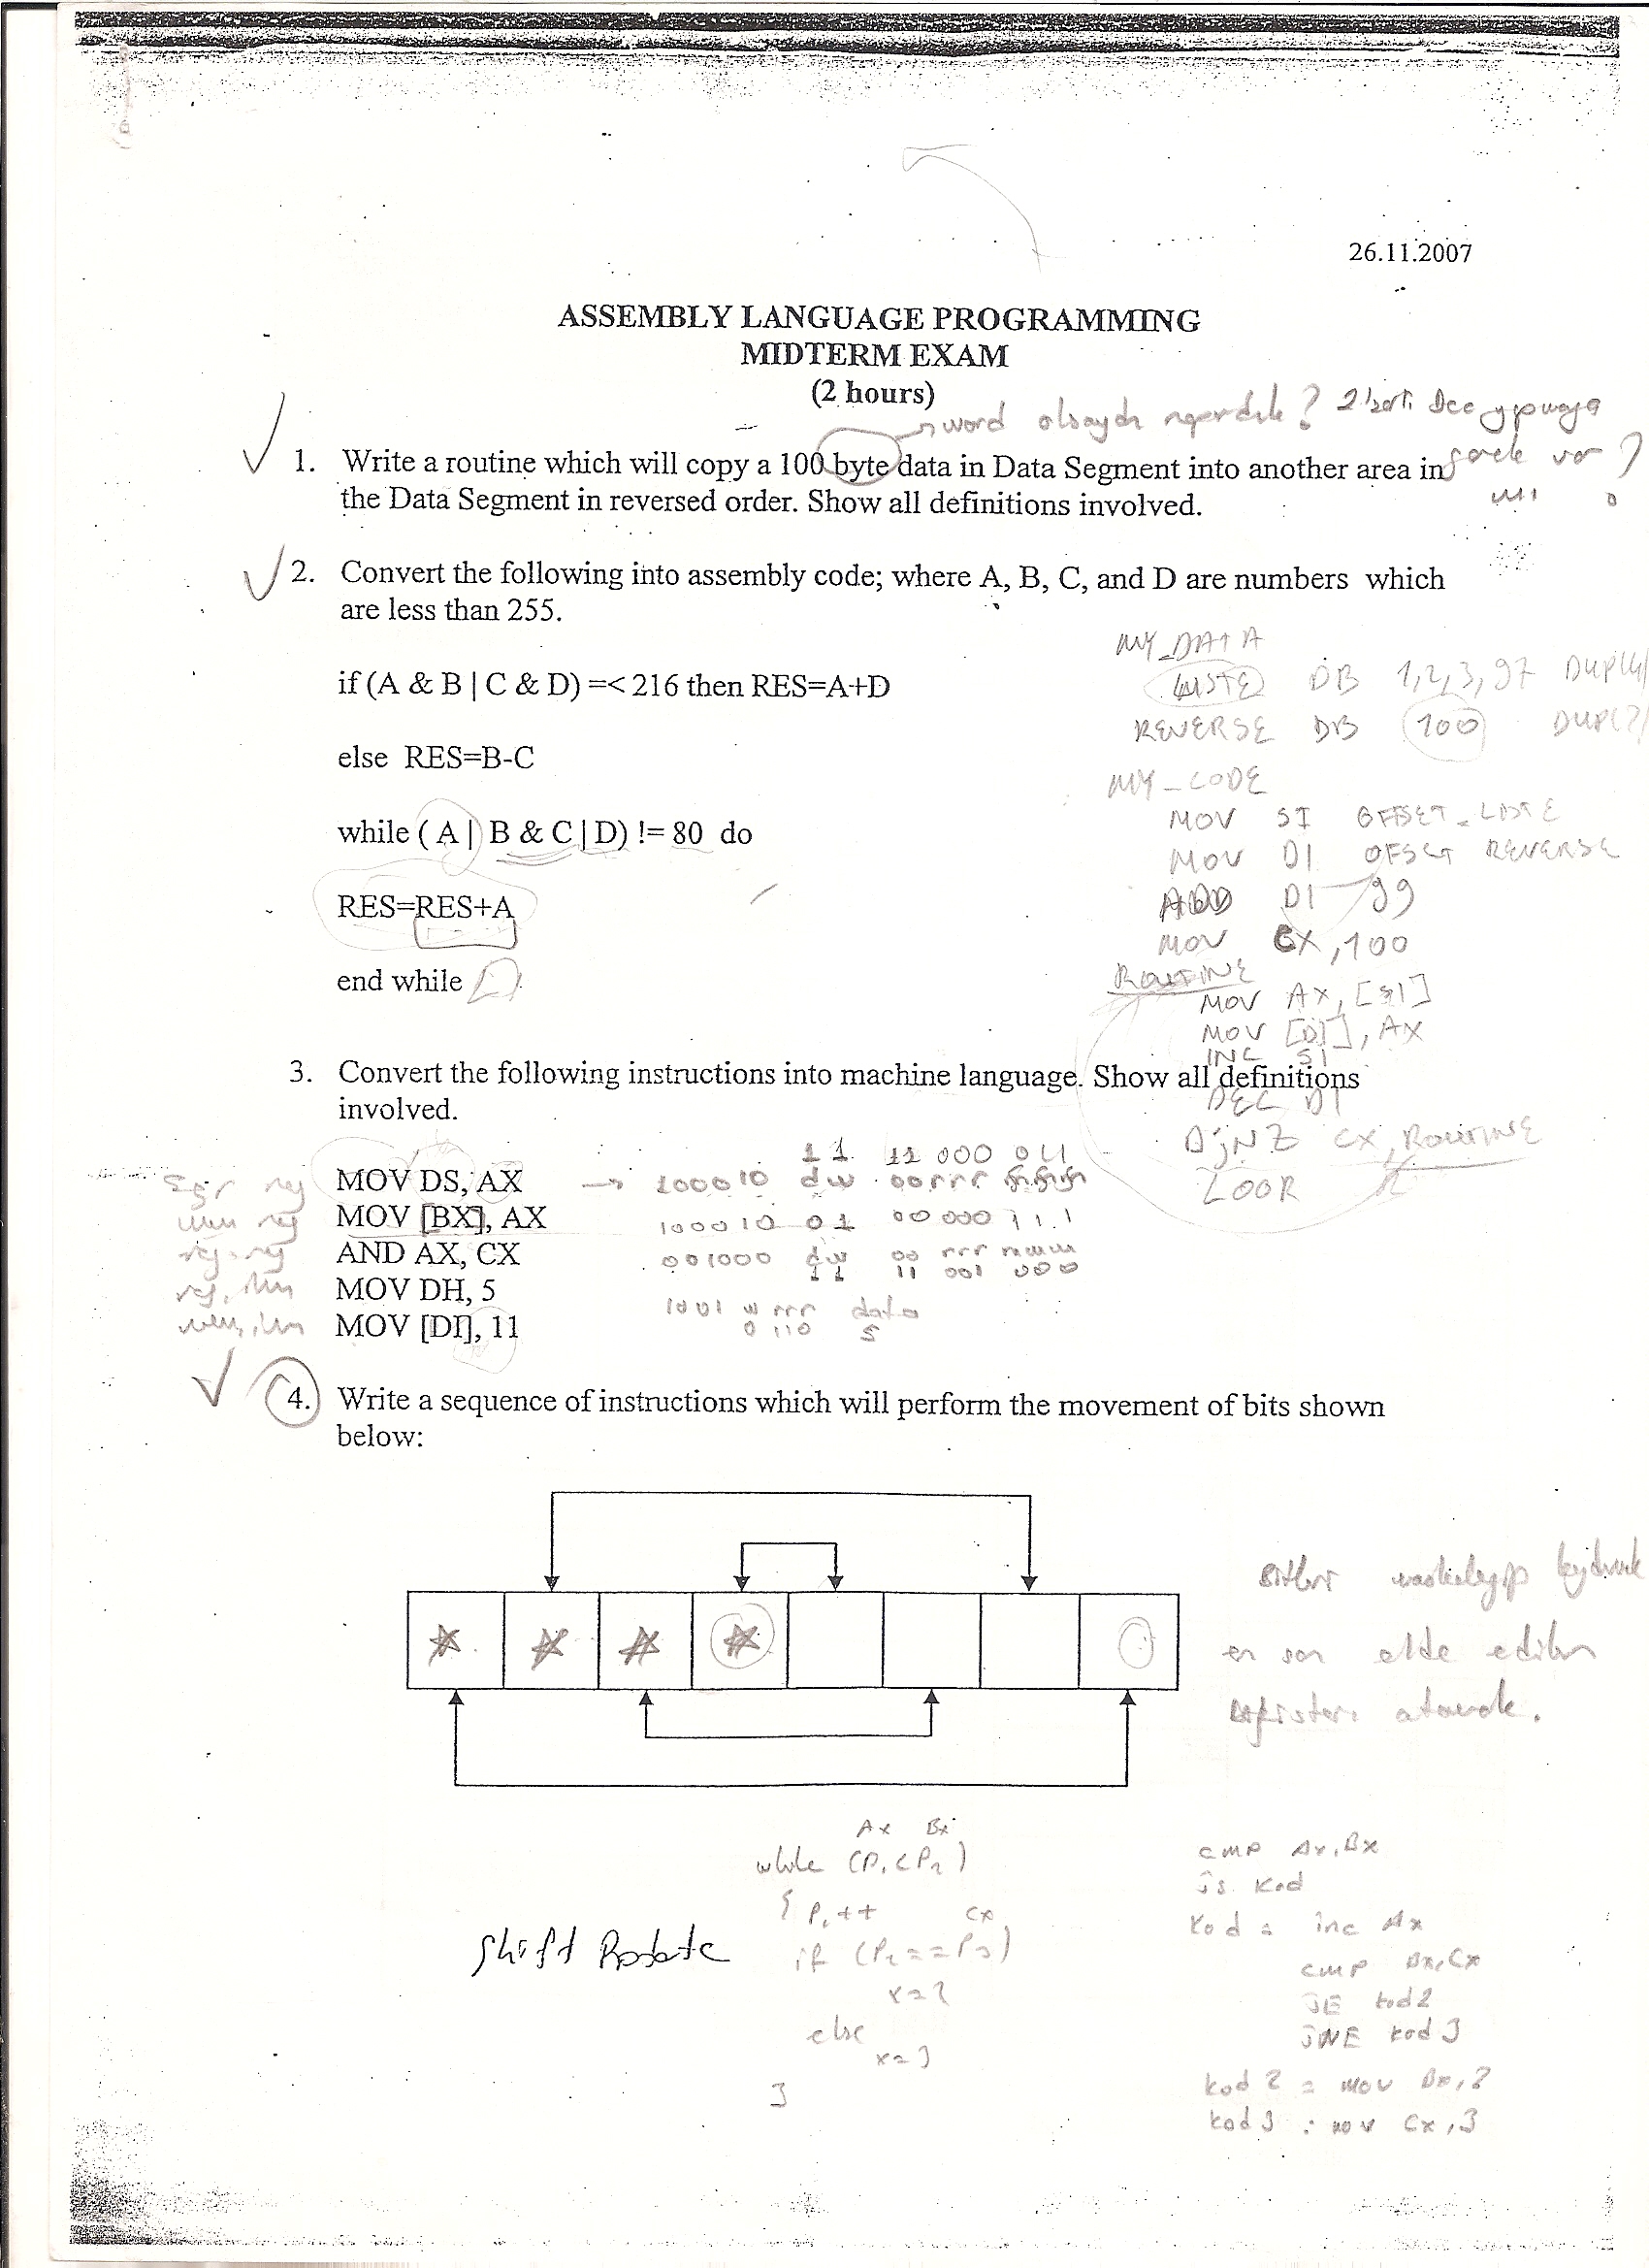 26.11.2007
ASSEMBLY LANGUAGE PROGRAMMING
MIDTERM EXAM
(2 hours)
word olsaydı
1. Write a routine which will copy a 100 byte data in Data Segment into another area in
the Data Segment in reversed order. Show all definitions involved.
2. Convert the following into assembly code; where A, B, C, and D are numbers which
are less than 255.
if (A & B | C & D) =< 216 then RES=A+D
else RES=B-C
while ( A | B & C | D) != 80 do
RES=RES+A
end while
MY_DATA
LISTE DB 1,2,3,97 DUP(4)
REVERSE DB 100 DUP(?)
MY_CODE
MOV SI OFFSET_LISTE
MOV DI OFSET REVERSE
ADD DI 99
MOV CX,100
ROUTINE
MOV AX,[SI]
MOV [DI],AX
INC SI
DEC DI
DJNZ CX,ROUTINE
LOOR
3. Convert the following instructions into machine language. Show all definitions
involved.
11 11 000 011
MOV DS, AX → 100010 dw 00rrr
MOV [BX], AX 100010 01 00 000 111
AND AX, CX 001000 dw 00 rrr mmm
11 11 001 000
MOV DH, 5 1001 w rrr data
0 110 5
MOV [DI], 11
4. Write a sequence of instructions which will perform the movement of bits shown
below:
en son elde edilen
Ax Bx
while (P1<P2)
{ P1++ Cx
if (P2==P3)
x=2
else
x=3
}
Shift Rotate
cmp Ax,Bx
js kod
kod = inc Ax
cmp Bx,Cx
JE kod2
JNE kod3
kod 2 = mov Bx,2
kod 3 : mov Cx,3